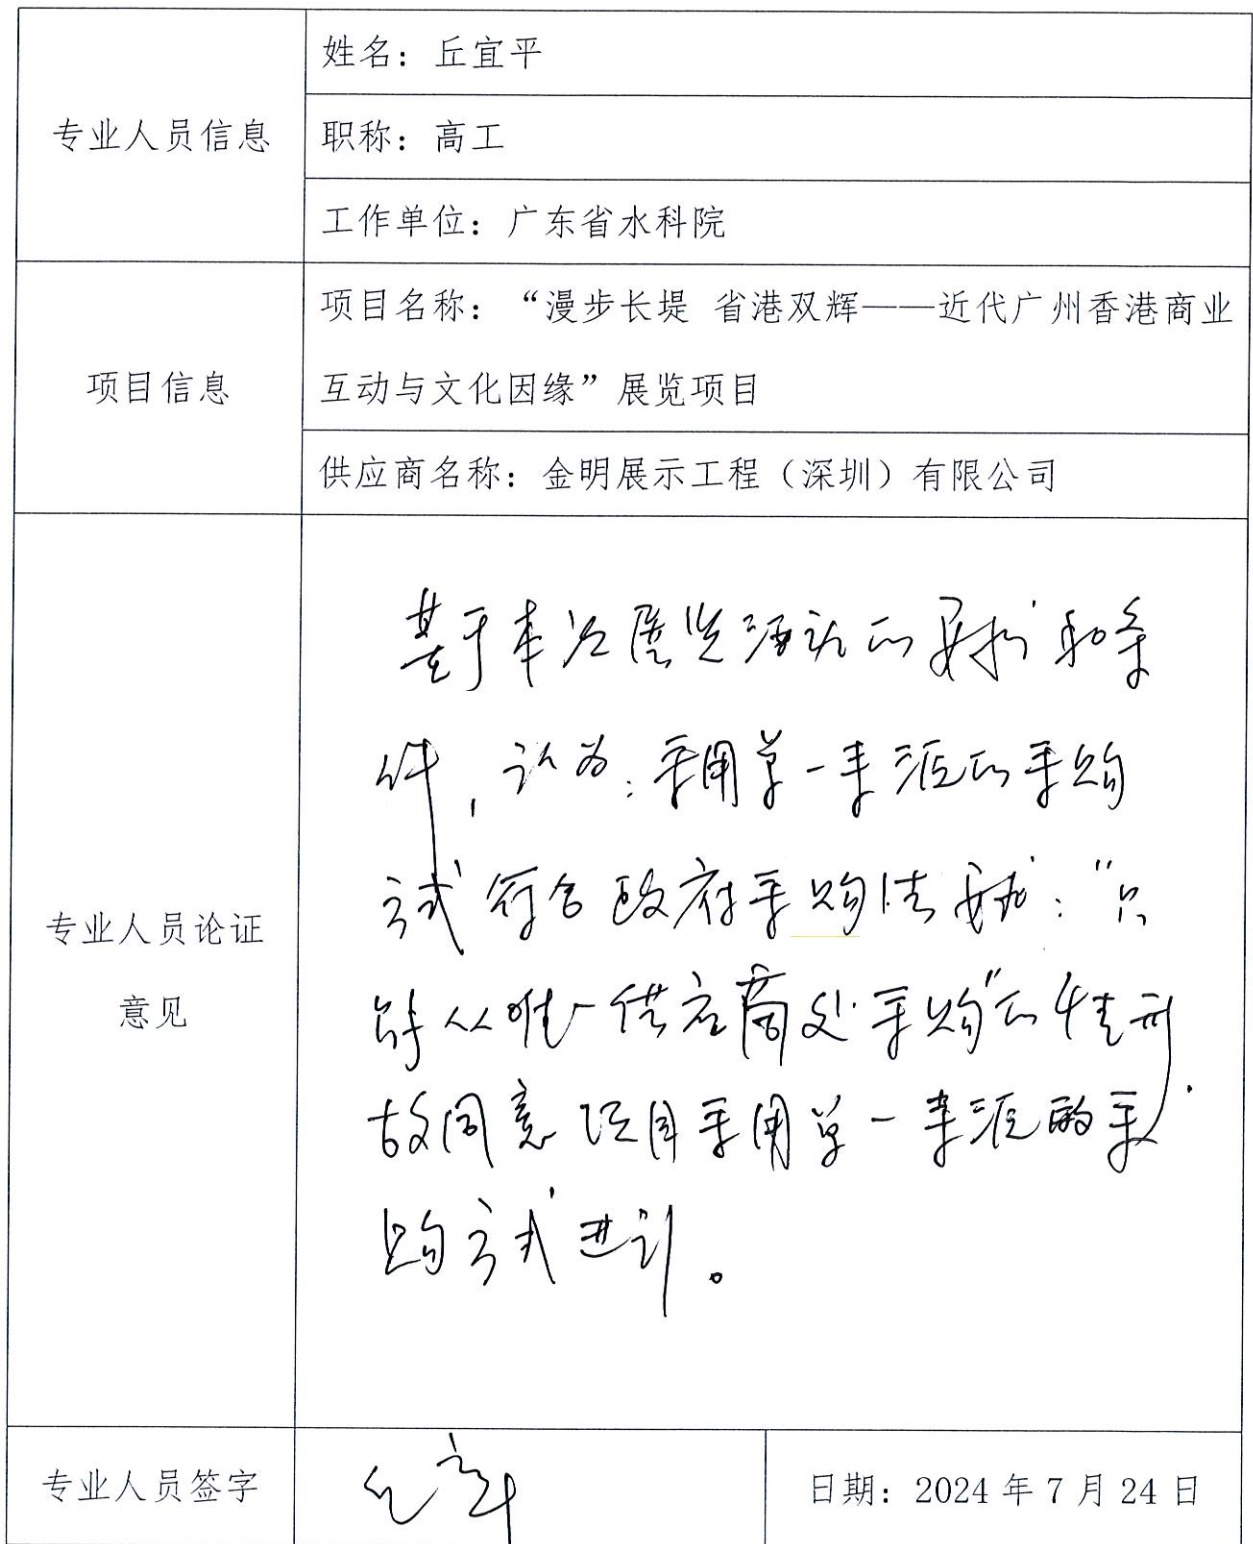 专业人员信息
姓名：丘宜平
职称：高工
工作单位：广东省水科院
项目信息
项目名称：“漫步长堤 省港双辉——近代广州香港商业
互动与文化因缘”展览项目
供应商名称：金明展示工程（深圳）有限公司
专业人员论证
意见
基于本次展览活动的要求和条
件，认为：采用单一来源的采购
方式符合政府采购法：“只
能从唯一供应商处采购”的情形．
故同意项目采用单一来源的采
购方式进行。
专业人员签字
日期：2024年7月24日